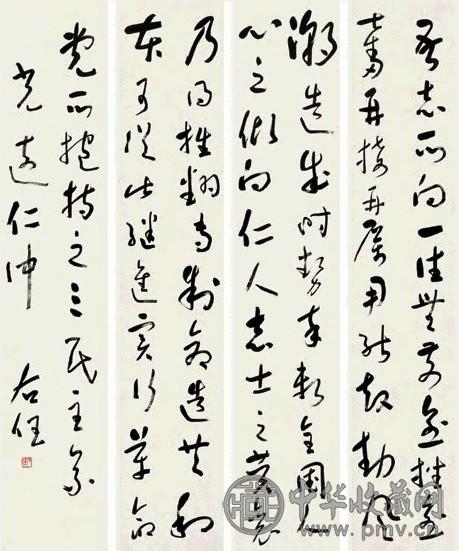 吾志所向一往無前愈挫愈
奮再接再厲用能鼓動風
潮造成時勢卒賴全國人
心之傾向仁人志士之贊襄
乃得推翻專制創造共和
本可從此繼進實行革命
黨所抱持之三民主義
仁仲 右任
中华收藏网
www.pmv.cn